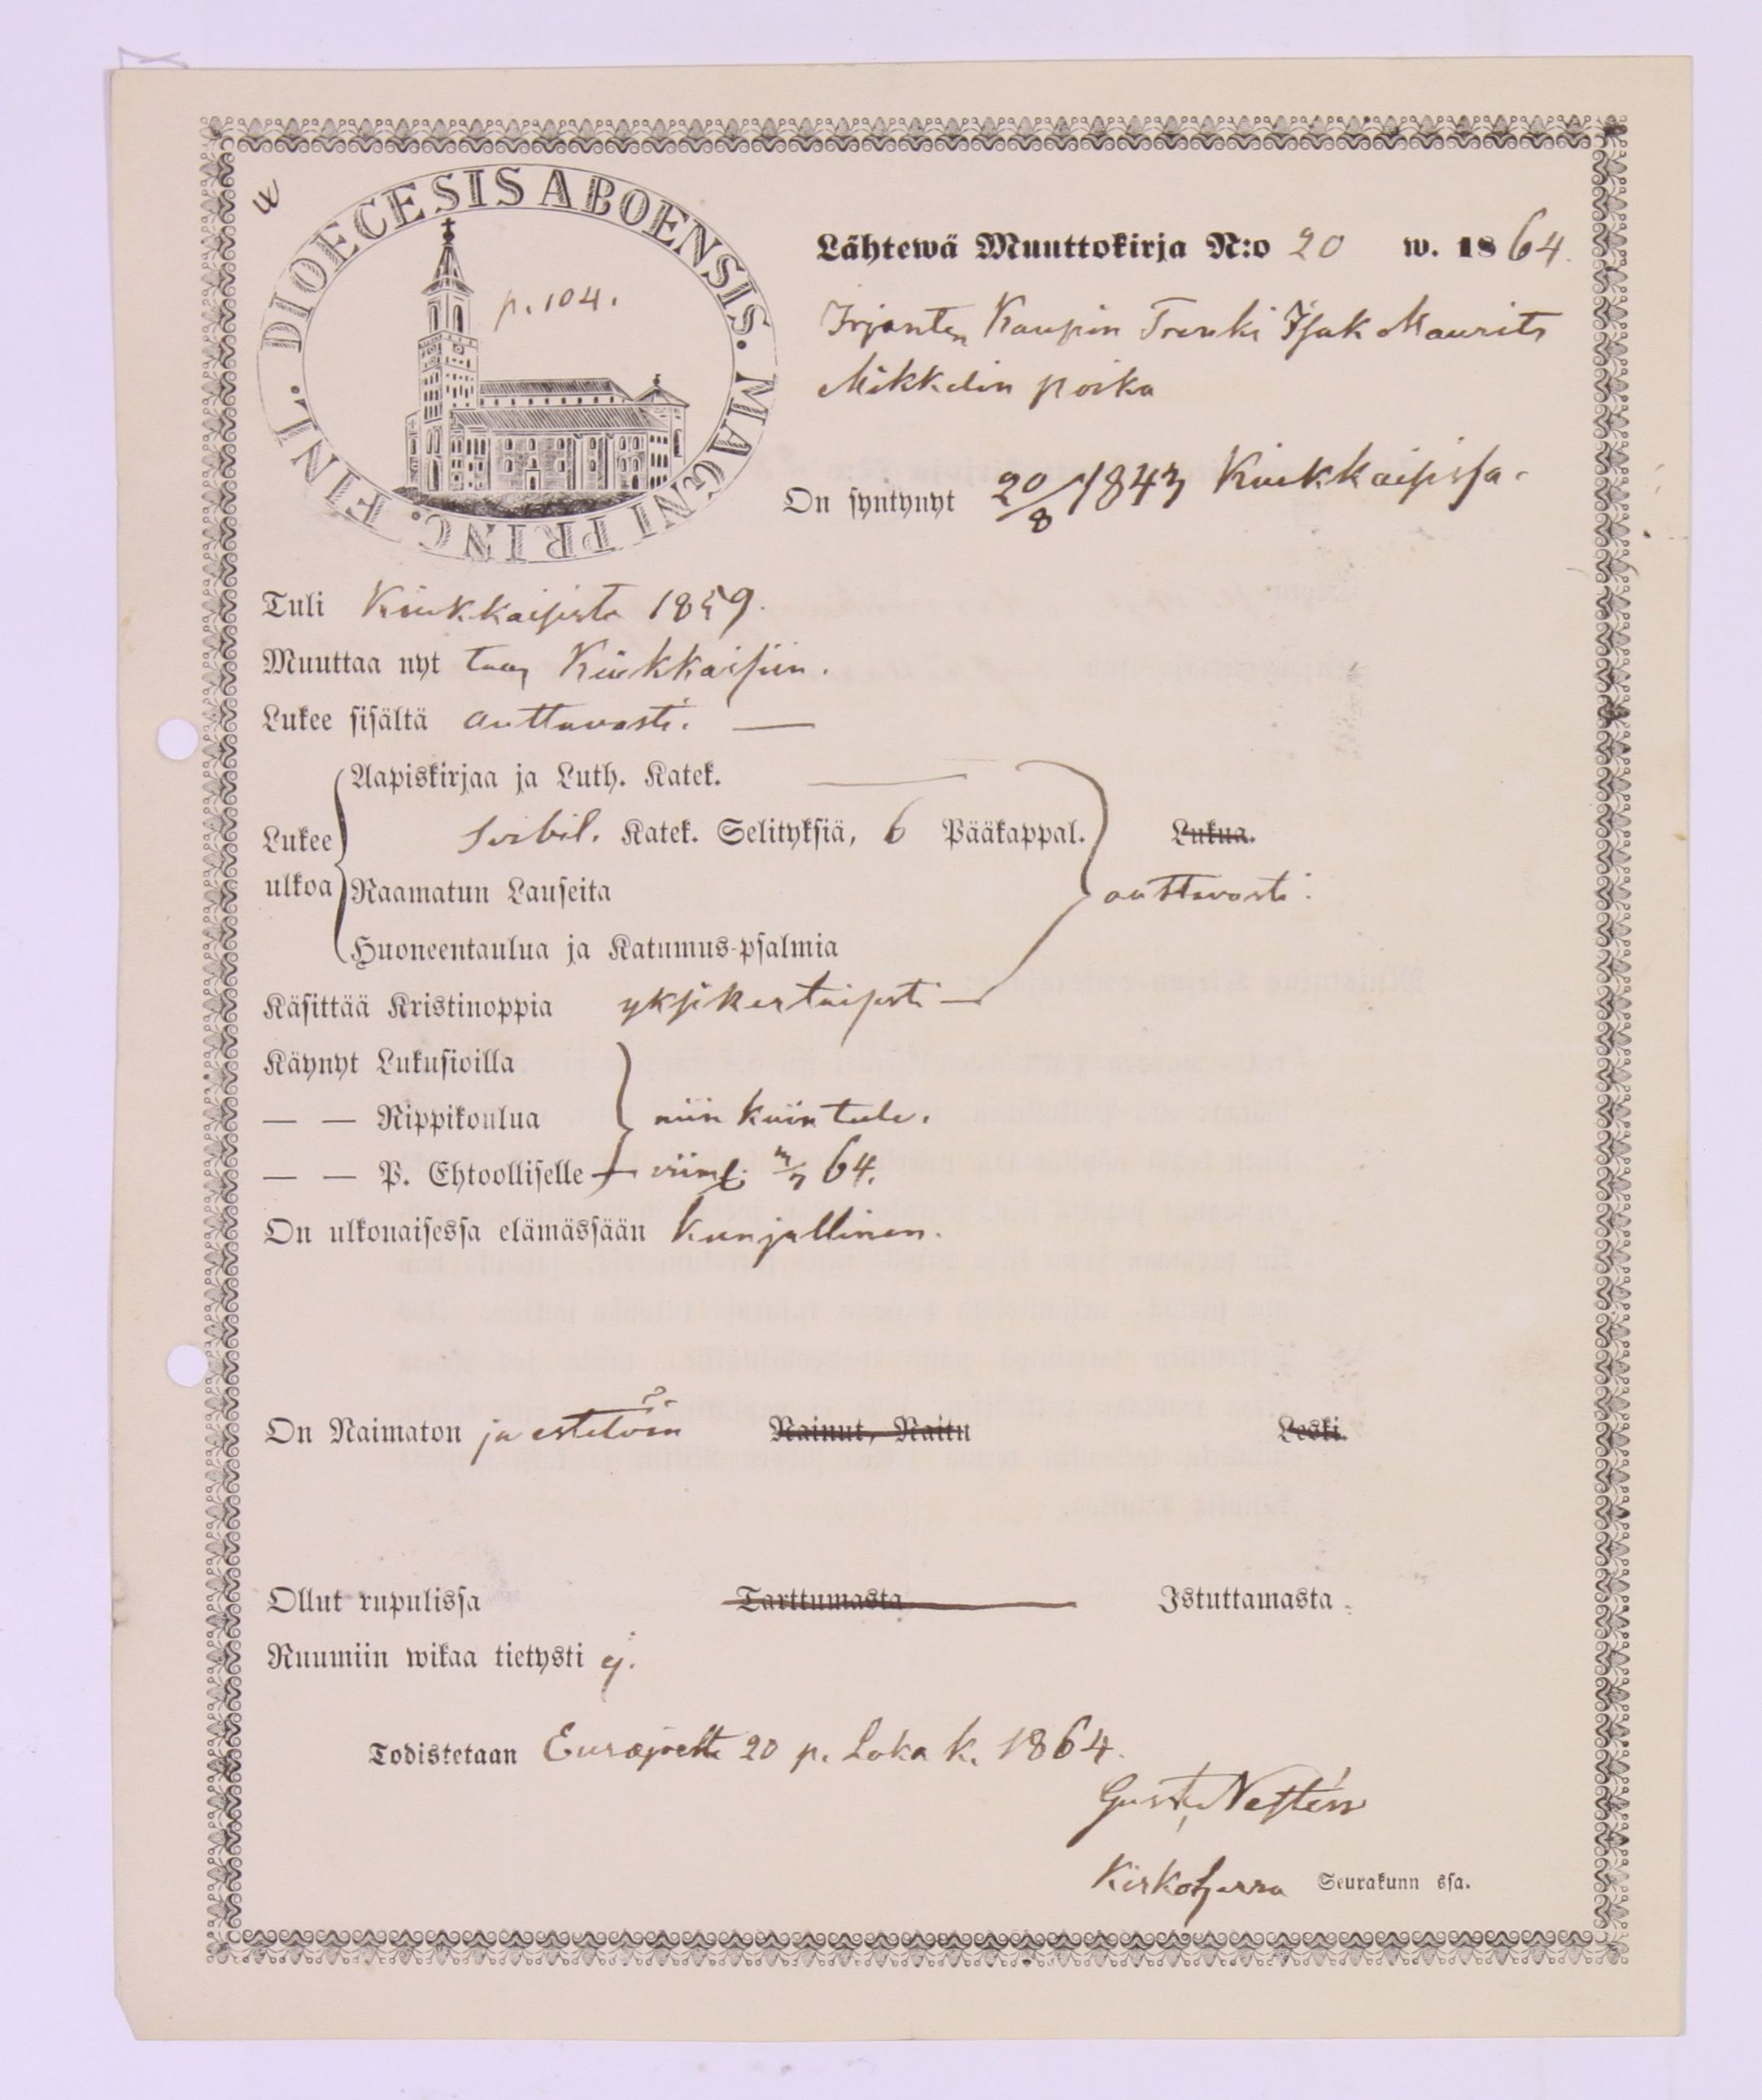 DIOECESIS ABOENSIS. MAGNI PRINC. FINL.
p. 104.
Lähtewä Muuttokirja N:o 20 w. 1864.
Irjanten Kaupin Trenki Isak Maurits
Mikkelin poika
On syntynyt 20/8 1843 Kiukkaisissa.
Tuli Kiukkaisista 1859.
Muuttaa nyt taas Kiukkaisiin.
Lukee sisältä auttavasti. —
Aapiskirjaa ja Luth. Katek.
Lukee ulkoa Svebil. Katek. Selityksiä, 6 Pääkappal. Lukua.
Raamatun Lauseita auttavasti.
Huoneentaulua ja Katumus-psalmia
Käsittää Kristinoppia yksikertaisesti —
Käynyt Lukusioilla
— — Rippikoulua niin kuin tulee.
— — P. Ehtoolliselle viim. 64.
On ulkonaisessa elämässään kunjallinen.
On Naimaton ja esteetöin Nainut, Naitu Leski.
Ollut rupulissa Tarttumasta Istuttamasta.
Ruumiin wikaa tietysti ej.
Todistetaan Eurajoelta 20 p. Loka k. 1864.
Gust.
Kirkoherra Seurakunn ssa.